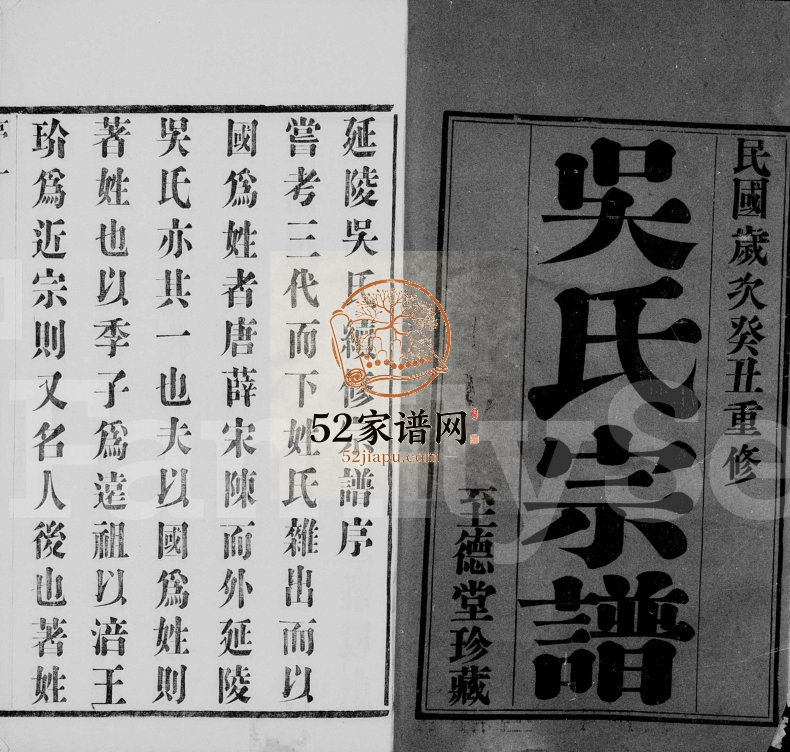 民國歲次癸丑重修
吳氏宗譜
至德堂珍藏
延陵吳氏續修宗譜序
嘗考三代而下姓氏雜出而以
國爲姓者唐薛宋陳而外延陵
吳氏亦其一也夫以國爲姓則
著姓也以季子爲逺祖以涪王
玠爲近宗則又名人後也著姓
序 一
52家谱网
52jiapu.com
FamilySe